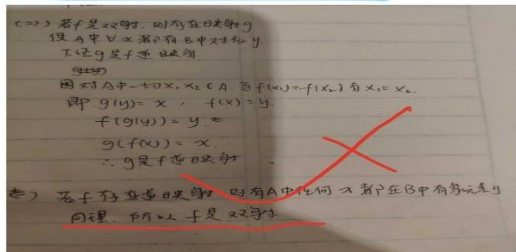 (=>) 若f是双射，则存在映射g
使A中∀x都有B中对应y
下证g是f逆映射
因对A中一切x₁,x₂∈A 当f(x₁)=f(x₂)有x₁=x₂
即 g(y)=x, f(x)=y
f(g(y))=y
g(f(x))=x.
∴g是f逆映射
若f存在逆映射 则有A中任何x都在B中有y
同理，所以 f是双射